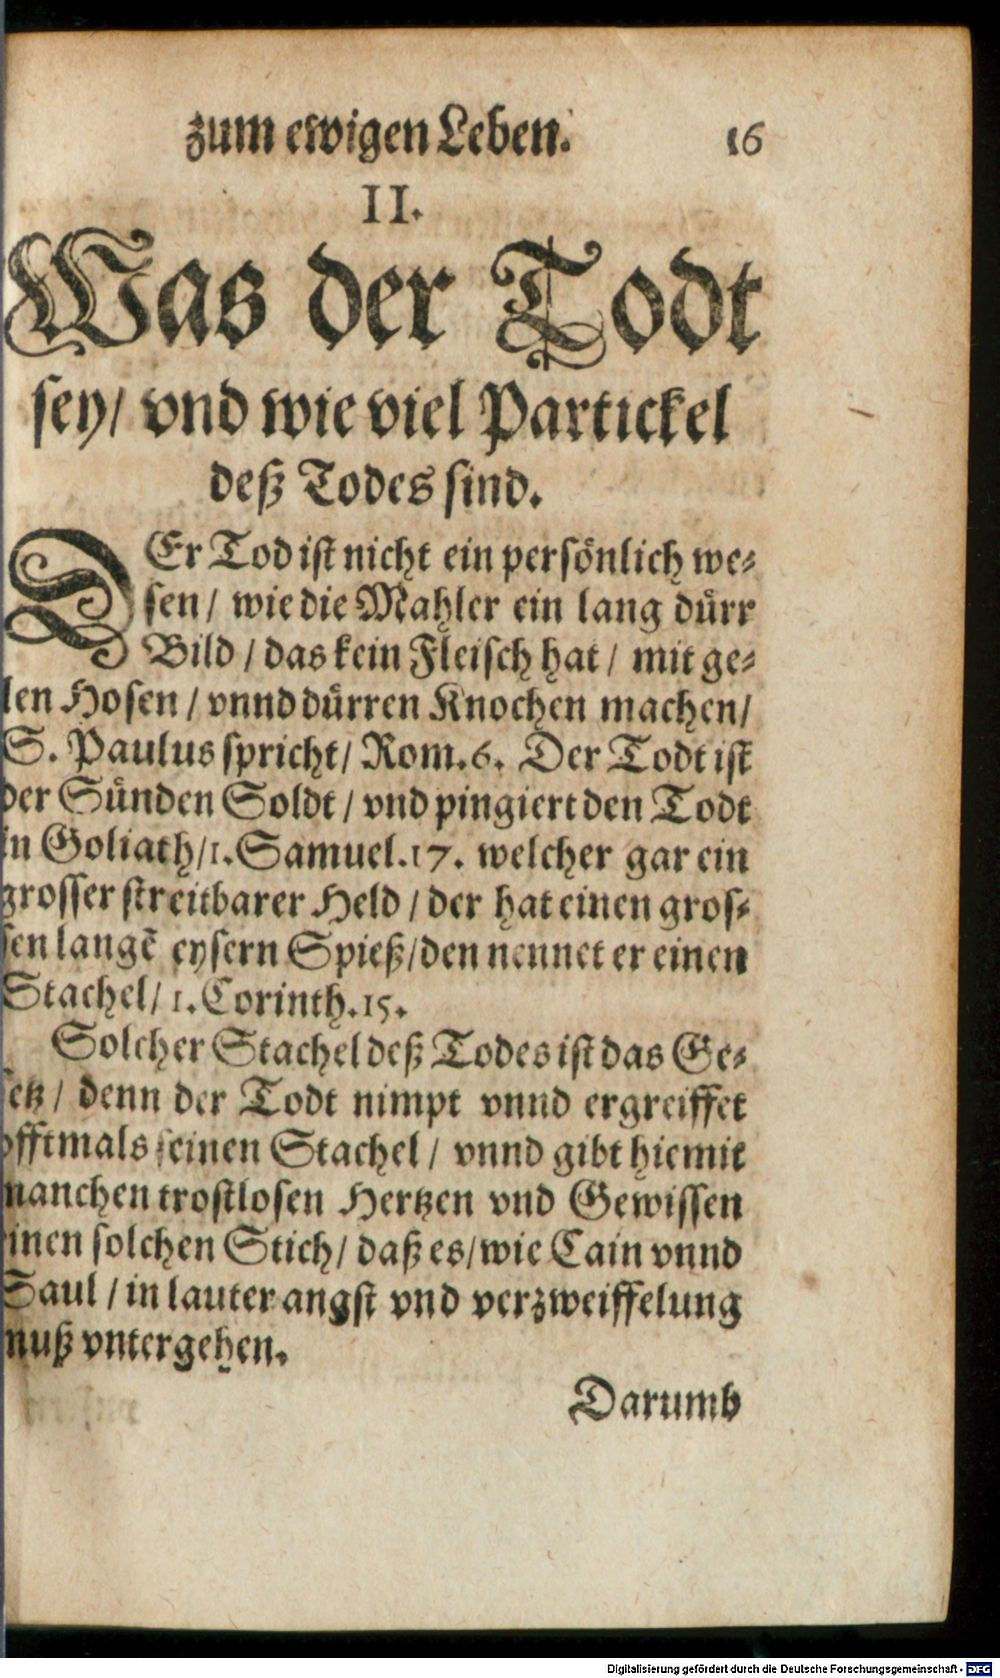 zum ewigen Leben. 16
II.
Was der Todt
sey/ vnd wie viel Partickel
deß Todes sind.
DEr Tod ist nicht ein persönlich we-
sen/ wie die Mahler ein lang dürr
Bild/ das kein Fleisch hat/ mit ge-
len Hosen/ vnnd dürren Knochen machen/
S. Paulus spricht/ Rom. 6. Der Todt ist
der Sünden Soldt/ vnd pingiert den Todt
in Goliath/ 1. Samuel. 17. welcher gar ein
grosser streitbarer Held/ der hat einen gros-
sen langē eysern Spieß/ den nennet er einen
Stachel/ 1. Corinth. 15.
Solcher Stachel deß Todes ist das Ge-
setz/ denn der Todt nimpt vnnd ergreiffet
offtmals seinen Stachel/ vnnd gibt hiemit
manchen trostlosen Hertzen vnd Gewissen
einen solchen Stich/ daß es/ wie Cain vnnd
Saul/ in lauter angst vnd verzweiffelung
muß vntergehen.
Darumb
Digitalisierung gefördert durch die Deutsche Forschungsgemeinschaft - DFG